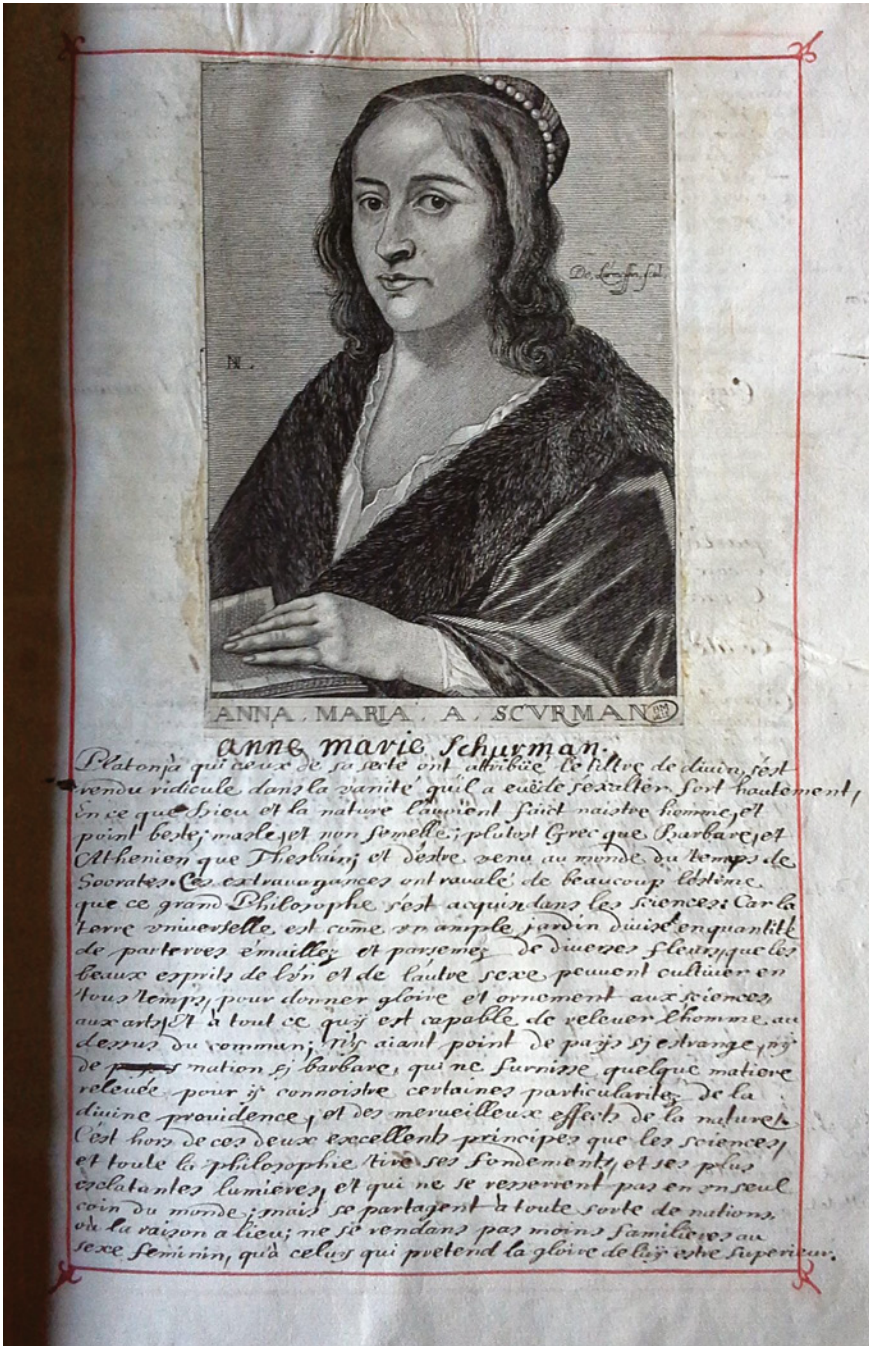 De Larmessin scul.
ANNA . MARIA . A . SCVRMAN
anne marie Schurman.
Platon, a qui ceux de sa secte ont attribüé le tiltre de divin, s'est
rendu ridicule dans la vanité qu'il a eue de s'exalter fort hautement,
En ce que Dieu et la nature l'avoient faict naistre homme, et
point beste; masle, et non femelle; plutost Grec que Barbare, et
Athenien que Thesbain; et d'estre venu au monde du temps de
Socrates. Ces extravagances ont ravalé de beaucoup l'estime
que ce grand Philosophe s'est acquis dans les sciences: Car la
terre vniverselle est come vn ample jardin divisé en quantité
de parterres émaillez et parsemez de diverses fleurs, que les
beaux esprits de l'vn et de l'autre sexe peuvent cultiver en
tous temps, pour donner gloire et ornement aux sciences,
aux arts, Et à tout ce quy est capable de relever l'homme au
dessus du commun; n'ÿ aiant point de païs sj estrange, nÿ
de nation sj barbare, qui ne furnisse quelque matiere
relevée pour ÿ connoistre certaines particularitez de la
divine providence, et des merveilleux effects de la nature.
C'est hors de ces deux excellents principes que les sciences,
et toute la philosophie tire ses fondements, et ses plus
esclatantes lumieres, et qui ne se resserrent pas en vn seul
coin du monde; mais se partagent à toute sorte de nations,
où la raison a lieu; ne se rendans pas moins familieres au
sexe feminin, qu'à celuy qui pretend la gloire de luÿ estre superieur.